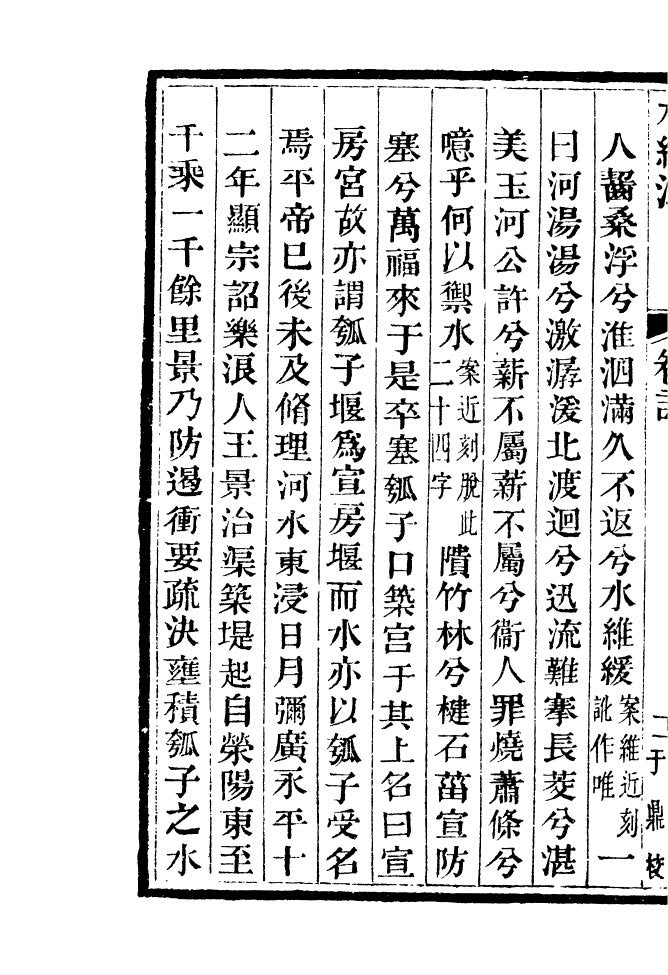 人齧桑浮兮淮泗滿久不返兮水維緩案維近刻訛作唯一
曰河湯湯兮激潺湲北渡迴兮迅流難搴長茭兮湛
美玉河公許兮薪不屬薪不屬兮衞人罪燒蕭條兮
噫乎何以禦水案近刻脫此二十四字隤竹林兮楗石菑宣防
塞兮萬福來于是卒塞瓠子口築宮于其上名曰宣
房宮故亦謂瓠子堰爲宣房堰而水亦以瓠子受名
焉平帝已後未及脩理河水東浸日月彌廣永平十
二年顯宗詔樂浪人王景治渠築堤起自滎陽東至
千乘一千餘里景乃防遏衝要疏決壅積瓠子之水